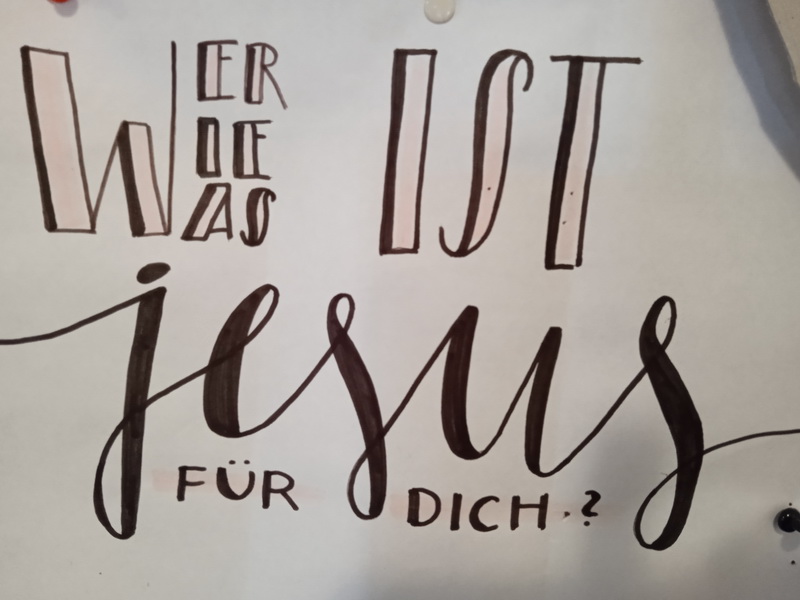 WER IST
IE
AS
jesus
FÜR DICH.?